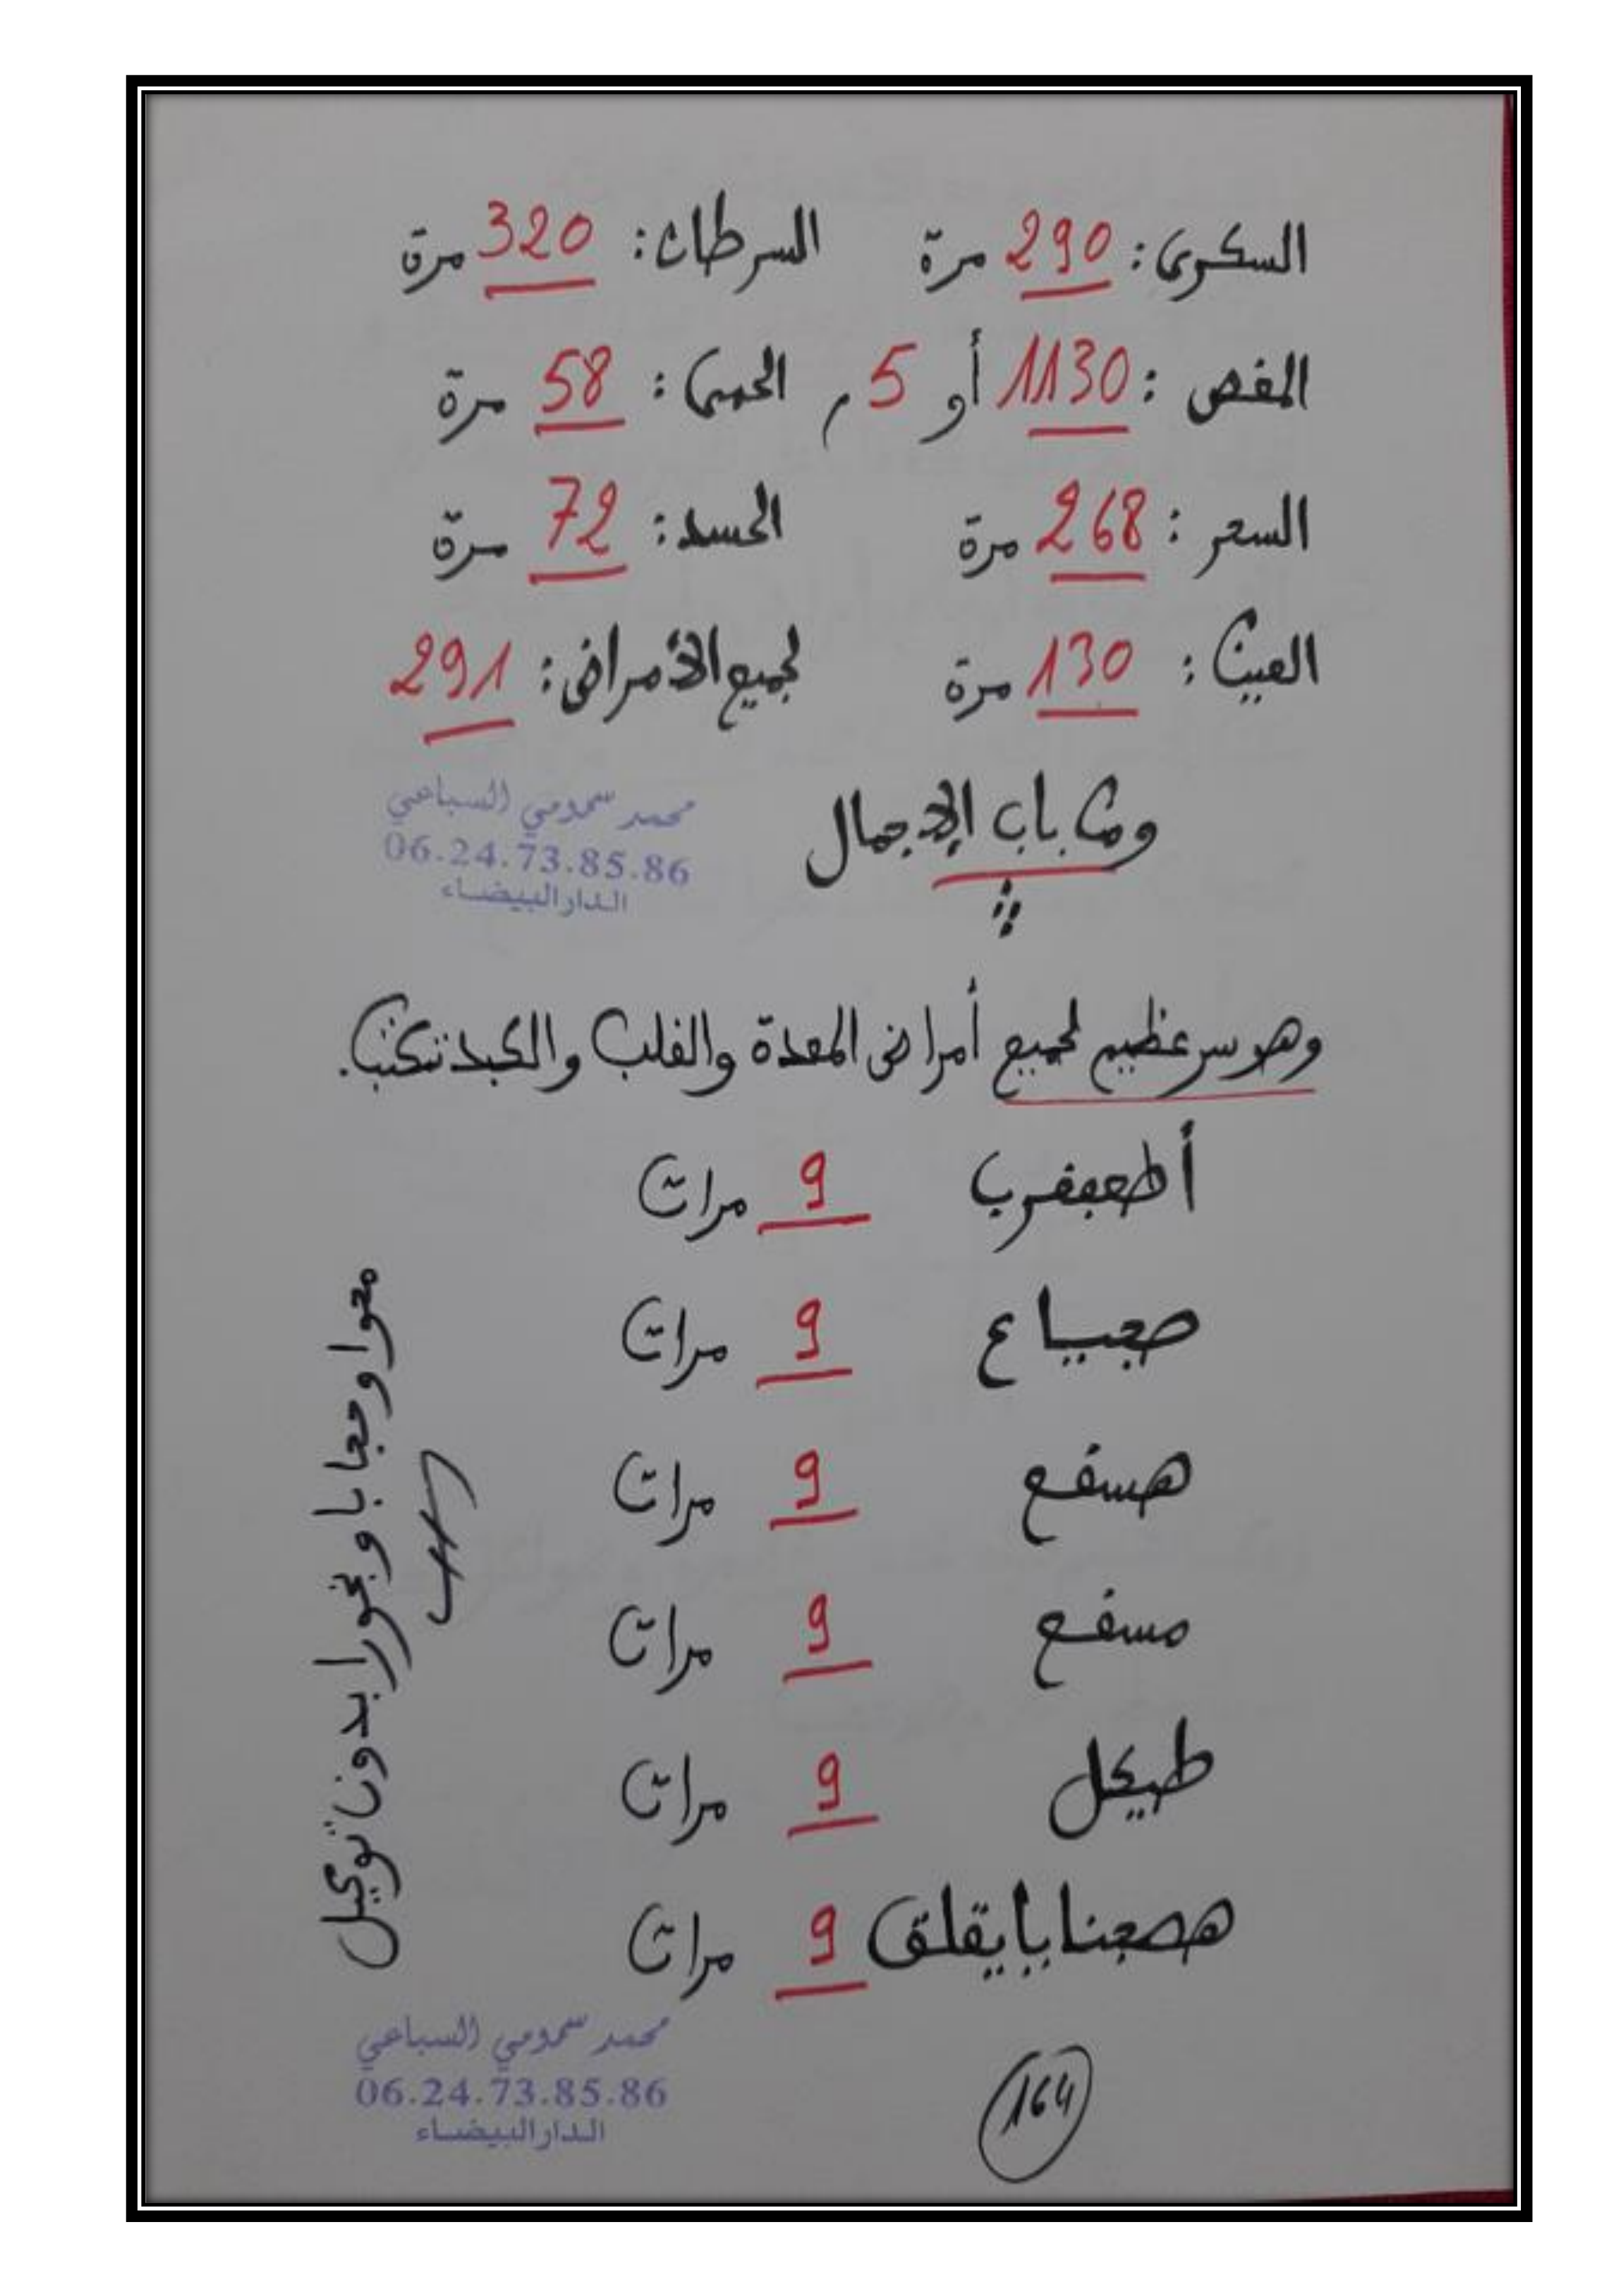 السكرى: 290 مرة السرطان: 320 مرة
المغص: 1130 أو 5 م الحمى: 58 مرة
السحر: 268 مرة الحسد: 72 مرة
العين: 130 مرة لجميع الأمراض: 291
ومن باب الإجمال
محمد سموomي السباعي
06.24.73.85.86
الدار البيضاء
وهو سر عظيم لجميع أمراض المعدة والقلب والكبد تكتب.
9 مرات
صعبياع 9 مرات
هسفع 9 مرات
مسفع 9 مرات
طيكل 9 مرات
هصعنا بايقلق 9 مرات
محوا وحجابا وبخورا بدون توكيل
محمد سمومي السباعي
06.24.73.85.86
الدار البيضاء
164